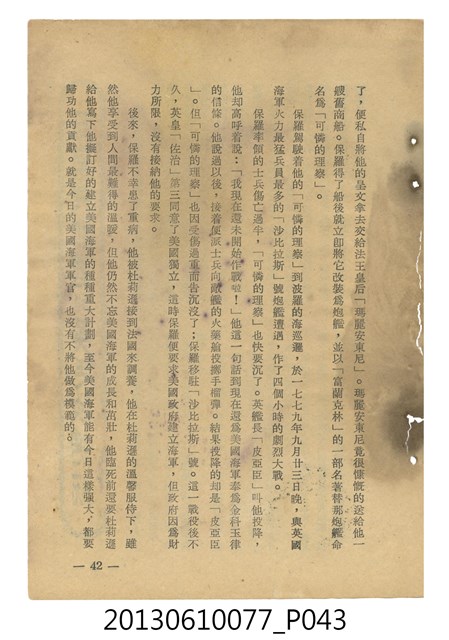 了，便私自將他的呈文拿去交給法王皇后「瑪麗安東尼」。瑪麗安東尼竟很慷慨的送給他一
艘舊商船。保羅得了船後就立即將它改裝為炮艦，並以「富蘭克林」的一部名著替那炮艦命
名為「可憐的理察」。
保羅駕駛着他的「可憐的理察」到波羅的海巡邏，於一七七九年九月廿三日晚，與英國
海軍火力最猛兵員最多的「沙比拉斯」號炮艦遭遇，作了四個小時的劇烈大戰。
保羅率領的士兵傷亡過半，「可憐的理察」也快要沉了。英艦長「皮亞臣」叫他投降，
他却高呼着說：「我現在還未開始作戰啦！」他這一句話到現在還為美國海軍奉為金科玉律
的信條。他說過以後，接着便派士兵向敵艦的火藥艙投擲手榴彈。結果投降的却是「皮亞臣
」。但「可憐的理察」也因受傷過重而告沉沒了；保羅移駐「沙比拉斯」號。這一戰役後不
久，英皇「佐治」第三同意了美國獨立，這時保羅便要求美國政府建立海軍，但政府因為財
力所限，沒有接納他的要求。
後來，保羅不幸患了重病，他被杜莉遜接到法國來調養，他在杜莉遜的溫馨服侍下，雖
然他享受到人間最難得的溫暖，但他仍然不忘美國海軍的成長和茁壯，他臨死前還要杜莉遜
給他寫下他擬訂好的建立美國海軍的種種重大計劃，至今美國海軍能有今日這樣强大，都要
歸功他的貢獻。就是今日的美國海軍軍官，也沒有不將他做為模範的。
— 42 —
20130610077_P043